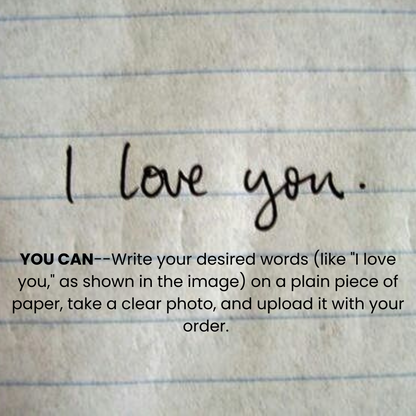 I love you.
YOU CAN--Write your desired words (like "I love
you," as shown in the image) on a plain piece of
paper, take a clear photo, and upload it with your
order.